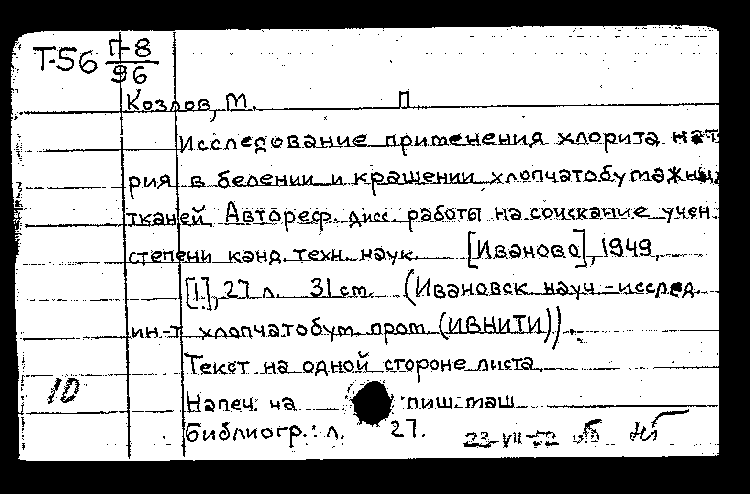 Т-56 П-8
96
Козлов, М. П
Исследование применения хлорита нат
рия в белении и крашении хлопчатобумажных
тканей Автореф. дисс. работы на соискание учен.
степени канд. техн. наук. [Иваново], 1949,
[1], 27 л. 31 см. (Ивановск науч.-исслед.
ин-т хлопчатобум. пром. (ИВНИТИ)).
Текст на одной стороне листа
10
Напеч. на пиш. маш
библиогр.: л. 27.
23-VII-52